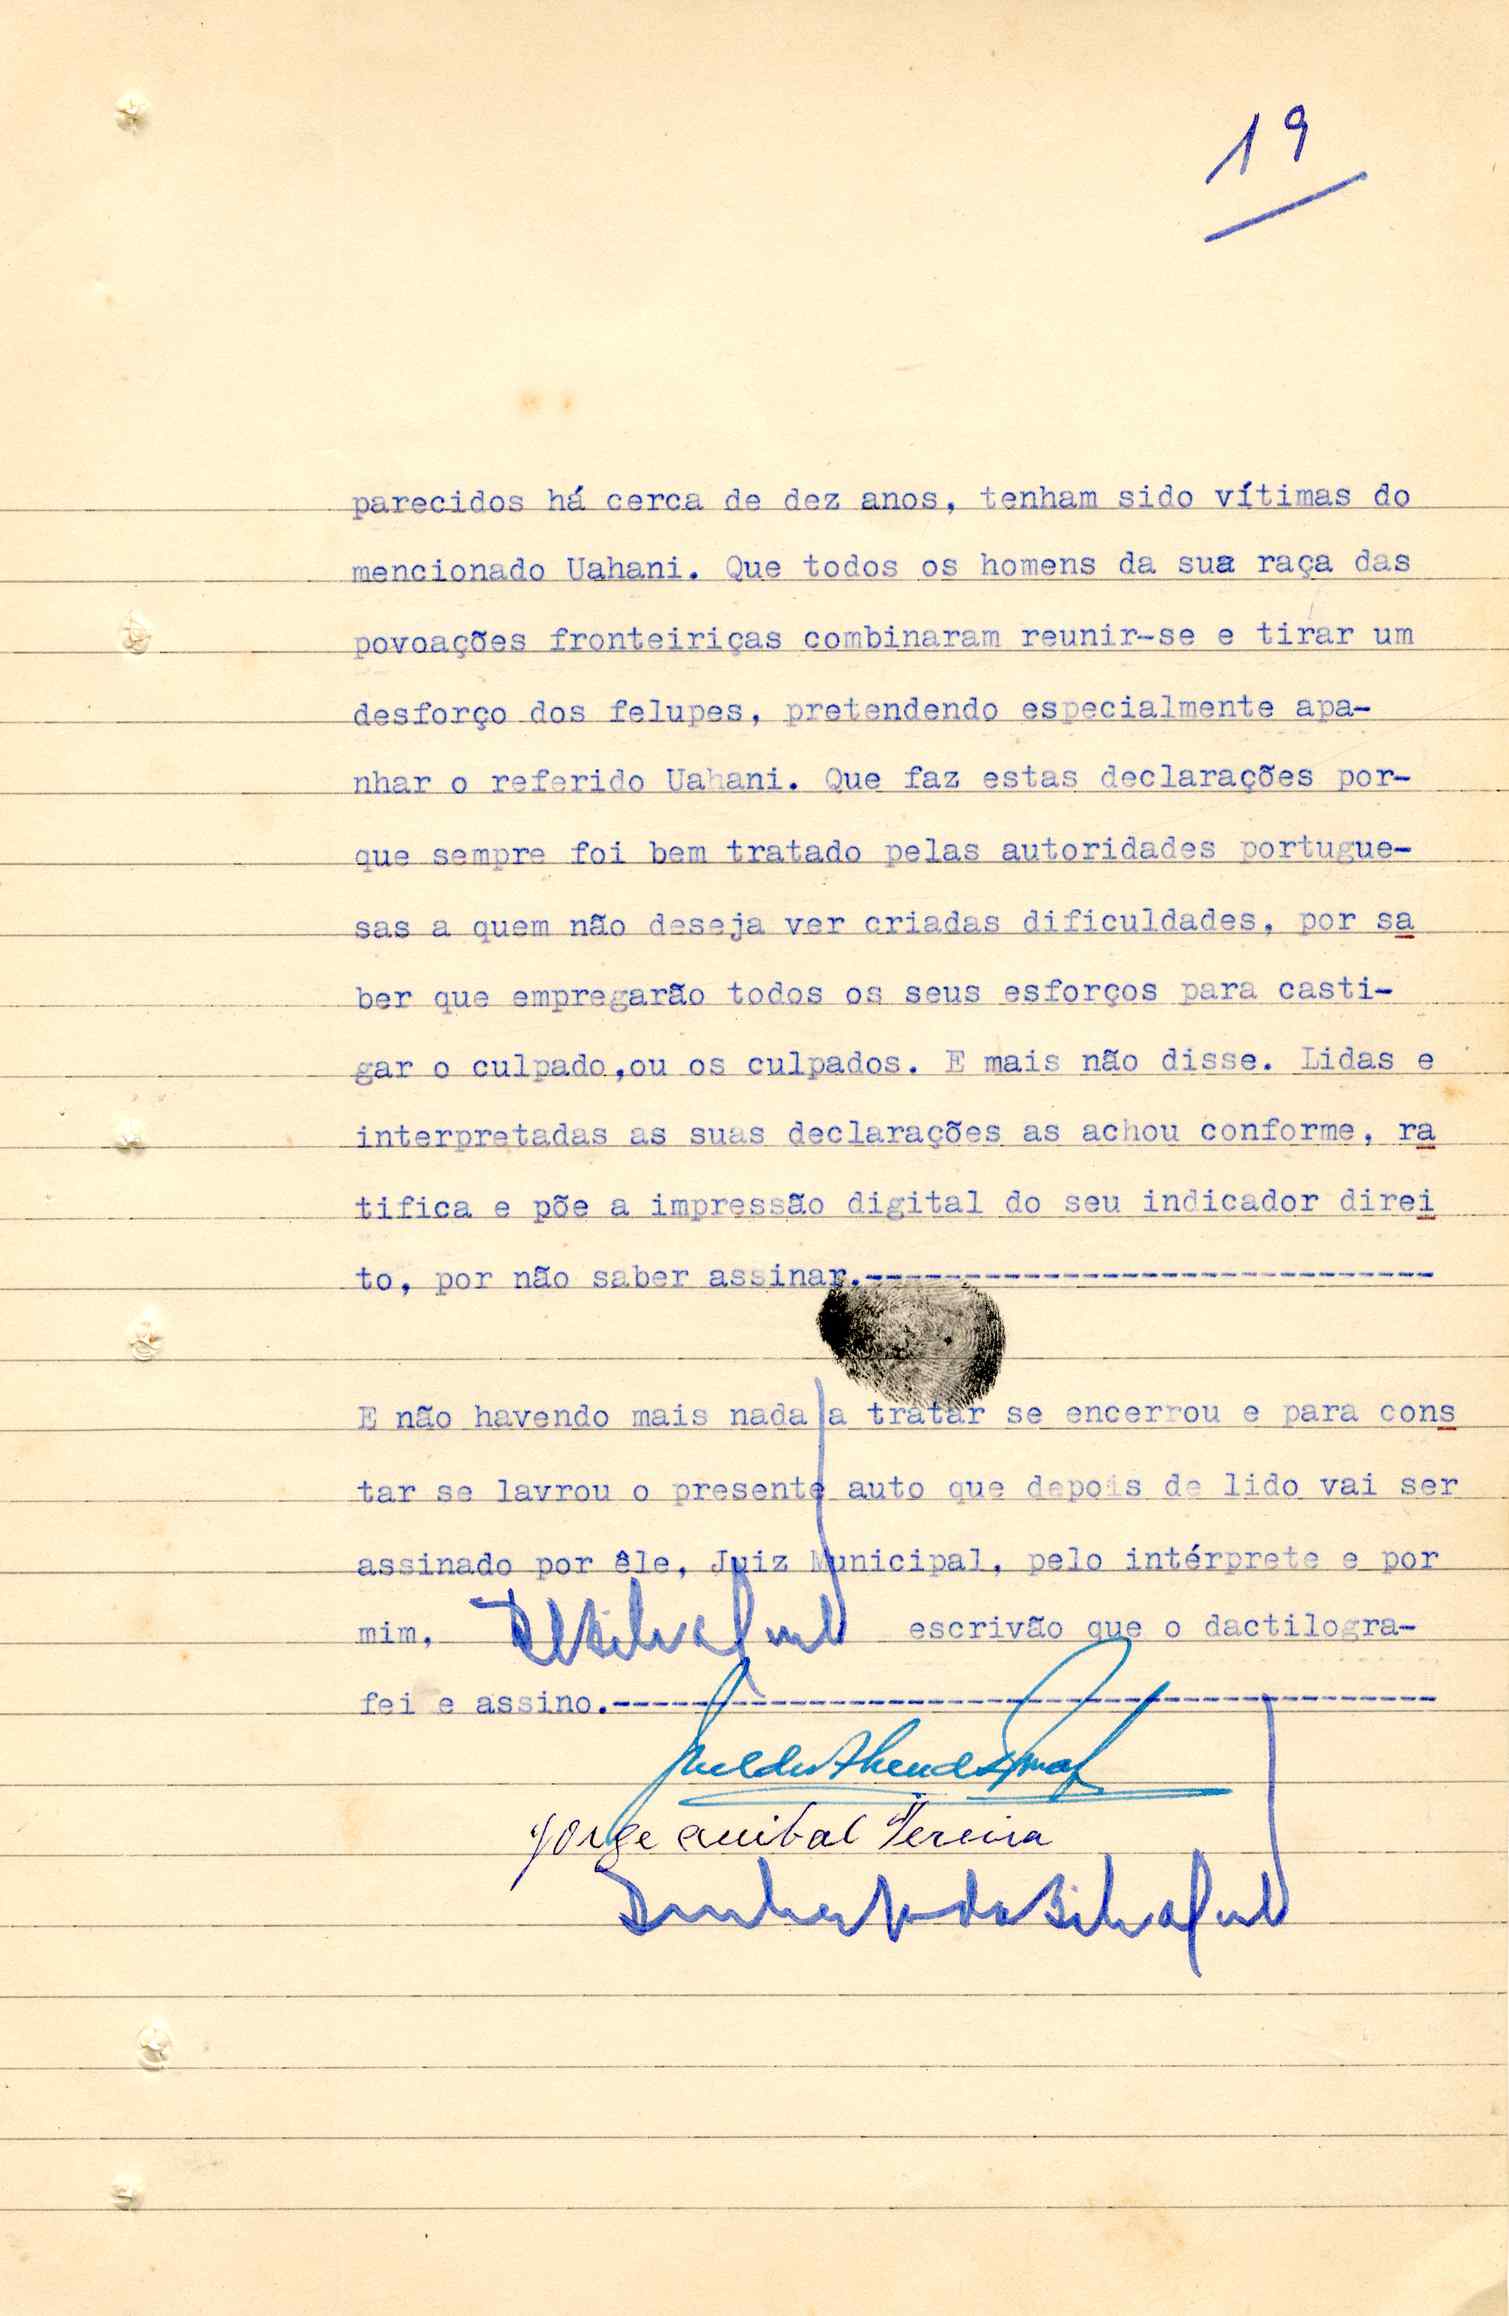 19
parecidos há cerca de dez anos, tenham sido vítimas do
mencionado Uahani. Que todos os homens da sua raça das
povoações fronteiriças combinaram reunir-se e tirar um
desforço dos felupes, pretendendo especialmente apa-
nhar o referido Uahani. Que faz estas declarações por-
que sempre foi bem tratado pelas autoridades portugue-
sas a quem não deseja ver criadas dificuldades, por sa
ber que empregarão todos os seus esforços para casti-
gar o culpado,ou os culpados. E mais não disse. Lidas e
interpretadas as suas declarações as achou conforme, ra
tifica e põe a impressão digital do seu indicador direi
to, por não saber assinar.-----------------------------
E não havendo mais nada a tratar se encerrou e para cons
tar se lavrou o presente auto que depois de lido vai ser
assinado por êle, Juiz Municipal, pelo intérprete e por
mim, escrivão que o dactilogra-
fei e assino.------------------------------------------
Jorge Anibal Pereira